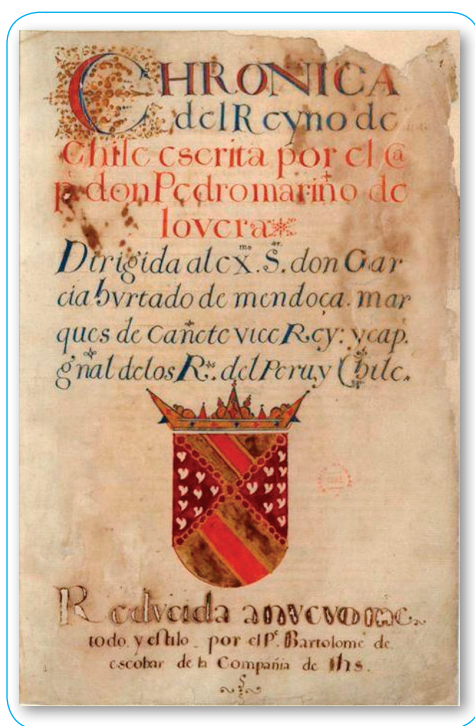 CHRONICA
del Reyno de
Chile escrita por el @
p. don Pedro mariño de
lovera
Dirigida al exᵐᵒ. Sᵒʳ. don Gar
cia hurtado de mendoça. mar
ques de Cañete vice Rey: y cap.
gñal de los Rˢ. del Peru y Chile.
Reducida a nuevo me
todo, y estilo. por el Pᵉ. Bartolome de
escobar de la Compañia de Ihs.